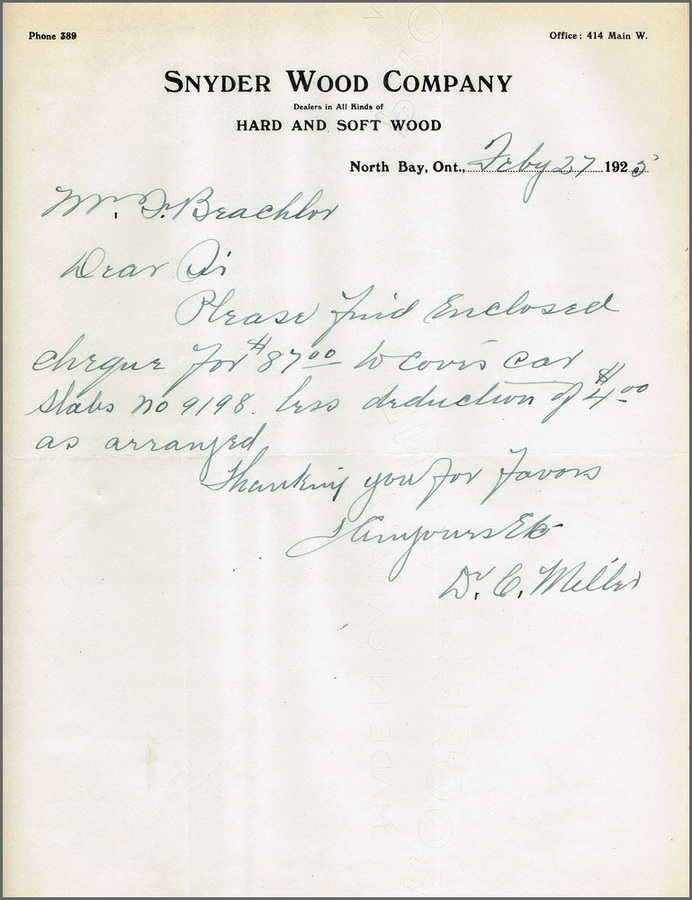 Phone 389
Office: 414 Main W.
SNYDER WOOD COMPANY
Dealers in All Kinds of
HARD AND SOFT WOOD
North Bay, Ont., Feby 27 1925
Mr. Beachlor
Dear Sir
Please find Enclosed
cheque for $87.00 to cover car
slabs no 9198. less deduction of $4.00
as arranged
Thanking you for favors
I am yours Etc
C. Miller